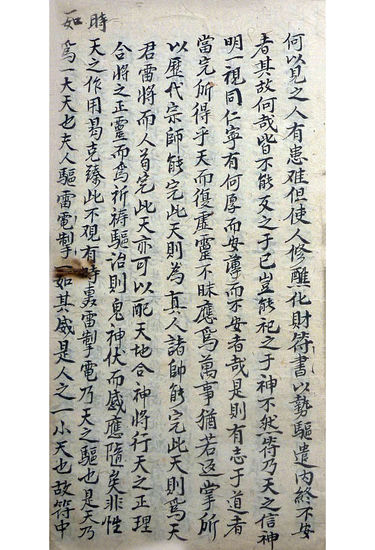 時如
何以見之人有患难但使人修醮化財符書以勢驅遣内終不安
者其故何哉皆不能反之于已豈能祀之于神不然符乃天之信神
明一視同仁寧有何厚而安薄而不安者哉是則有志于道者
當完所得乎天而復虚靈不昧應爲萬事猶若返掌所
以歷代宗師能完此天則為真人諸師能完此天則爲天
君雷將而人苟完此天亦可以配天地合神將行天之正理
合將之正靈而爲祈祷驅治則鬼神伏而感應隨矣非性
天之作用曷克臻此不覌有時轟雷掣電乃天之驅也是天乃
爲一大天也夫人驅雷電掣一如其威是人之一小天也故符中